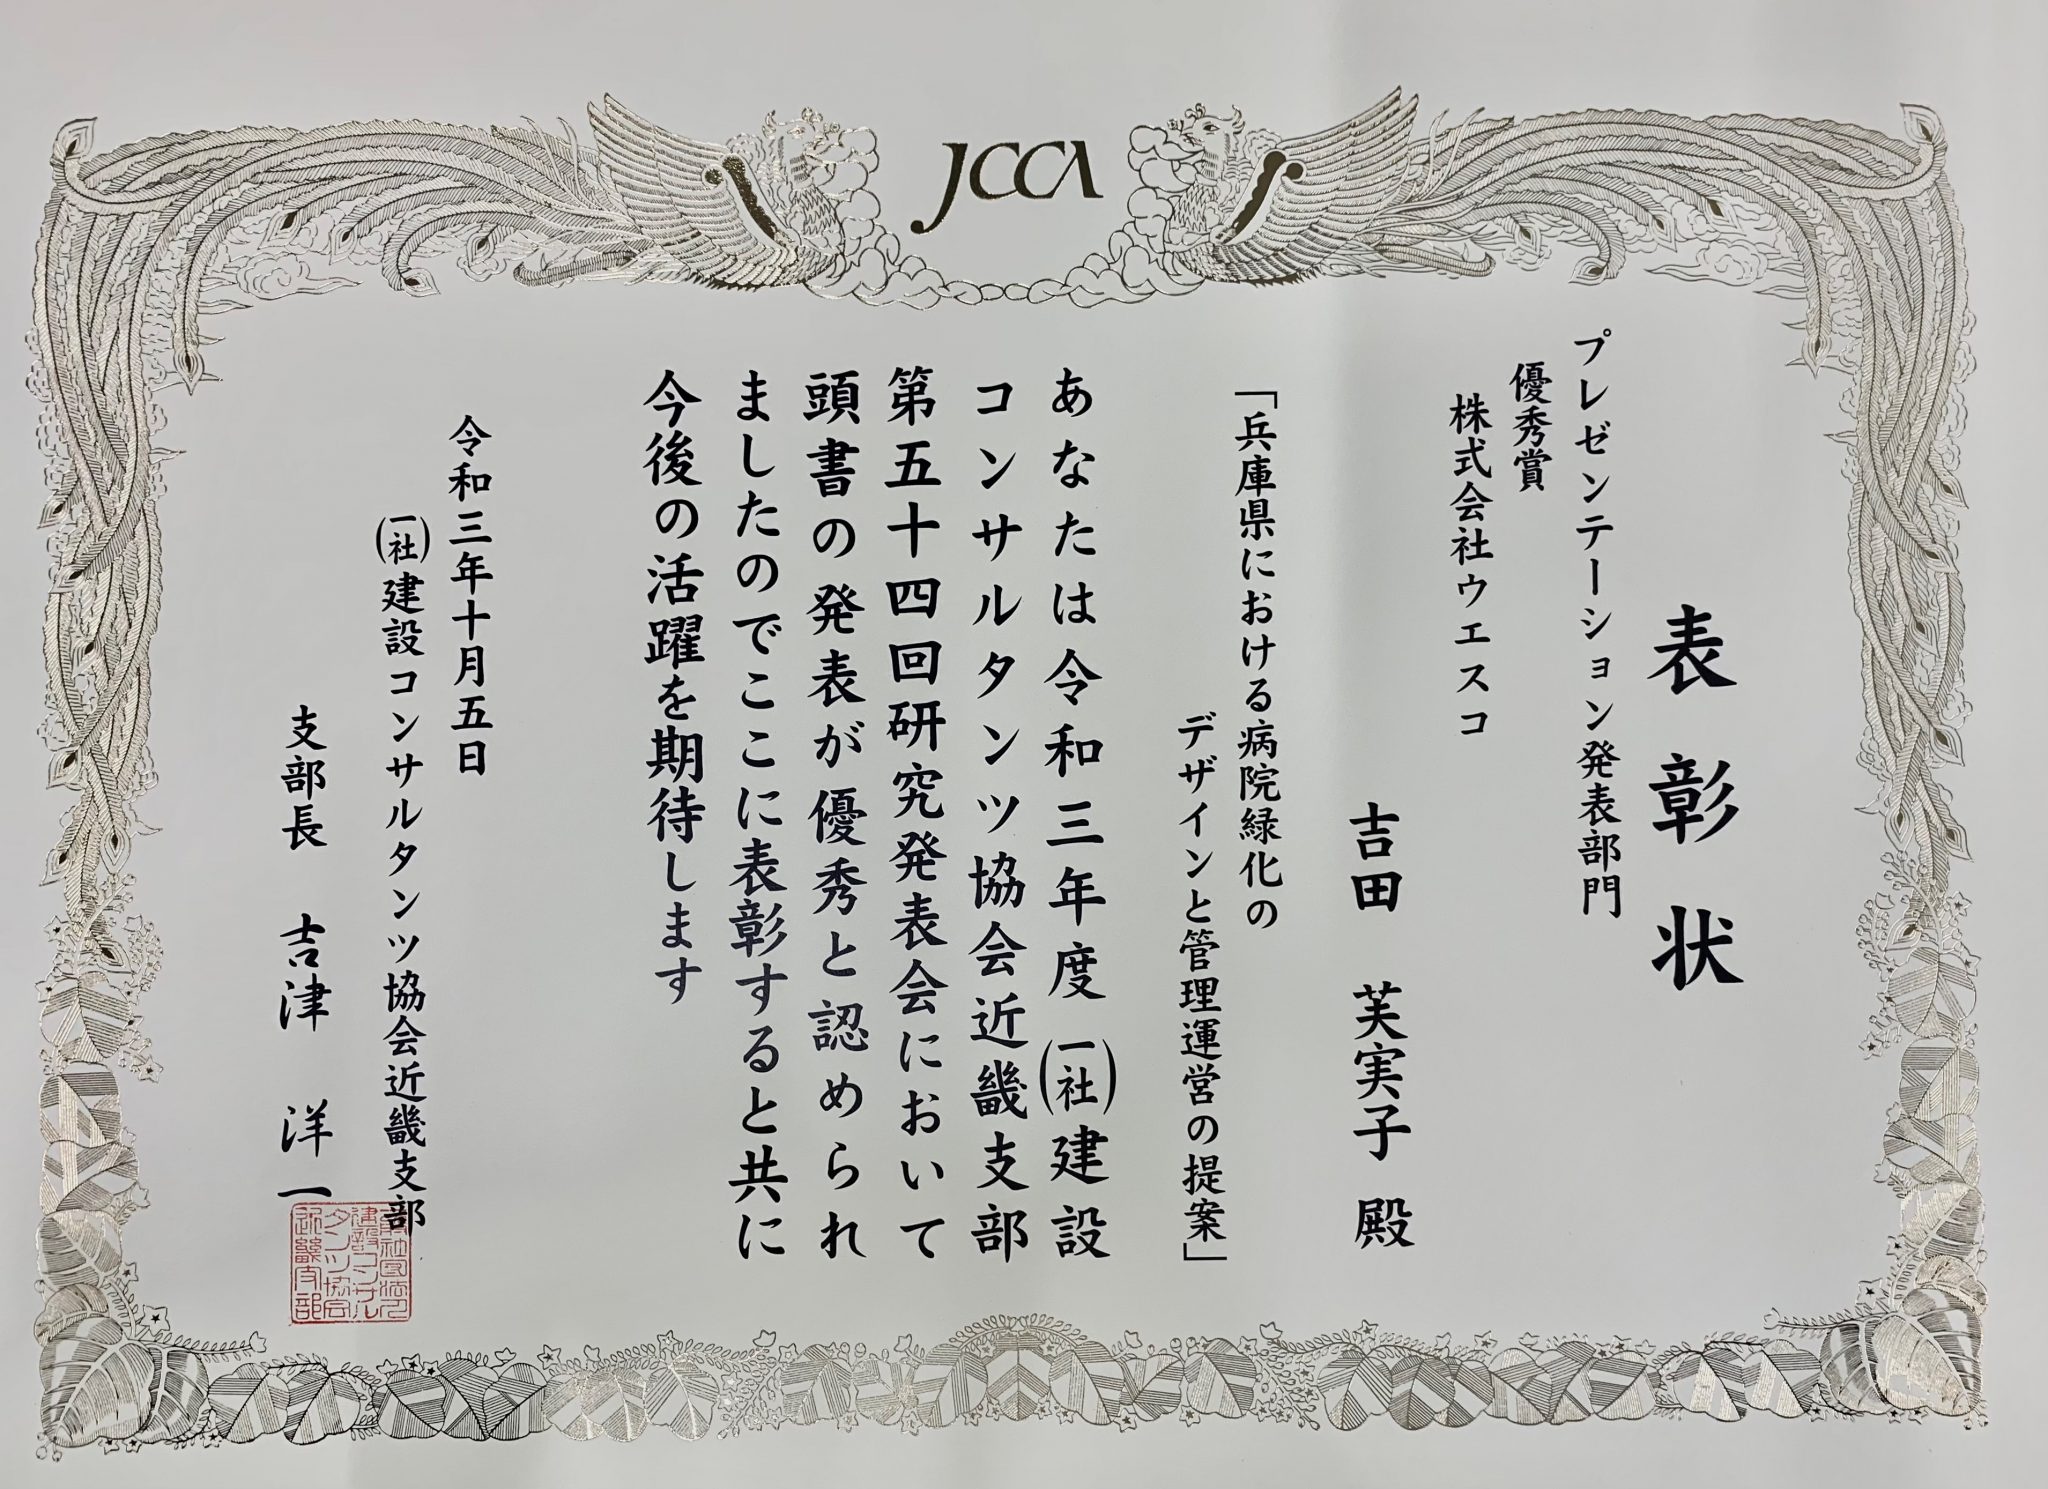 JCCA
表彰状
プレゼンテーション発表部門
優秀賞
株式会社ウエスコ
吉田 芙実子 殿
「兵庫県における病院緑化の
デザインと管理運営の提案」
あなたは令和三年度(一社)建設
コンサルタンツ協会近畿支部
第五十四回研究発表会において
頭書の発表が優秀と認められ
ましたのでここに表彰すると共に
今後の活躍を期待します
令和三年十月五日
(一社)建設コンサルタンツ協会近畿支部
支部長 吉津 洋一